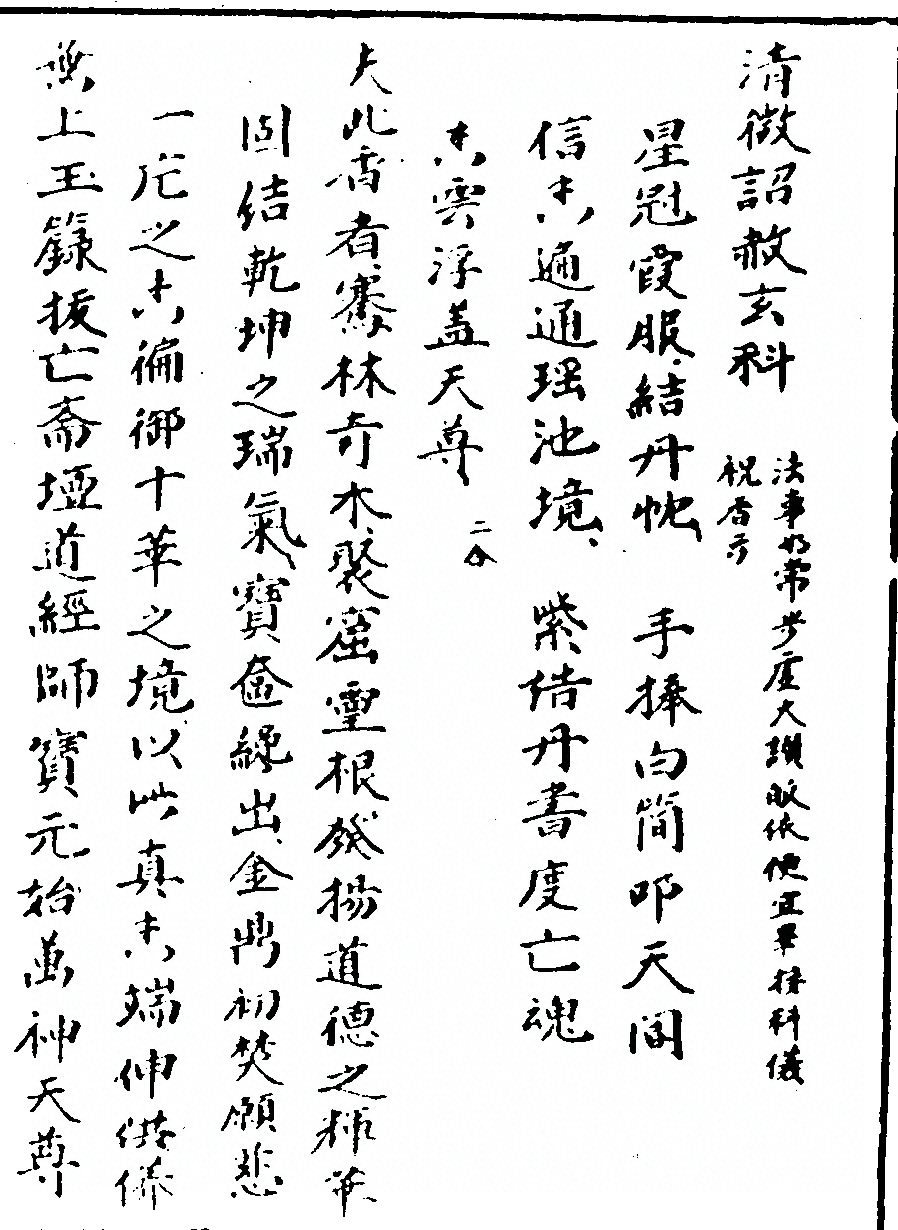 清微詔赦玄科
法事如常步虛大讚皈依便宜畢接科儀
祝香云
星冠霞服結丹忱 手捧白簡叩天閽
信香通通瑶池境 紫誥丹書度亡魂
香雲浮盖天尊 二合
夫此香者騫林奇木聚窟靈根發揚道德之輝華
固結乾坤之瑞氣寶奩纔出金鼎初焚願悲
一炷之香徧御十華之境以此真香端伸供養
無上玉籙拔亡齋壇道經師寶元始萬神天尊